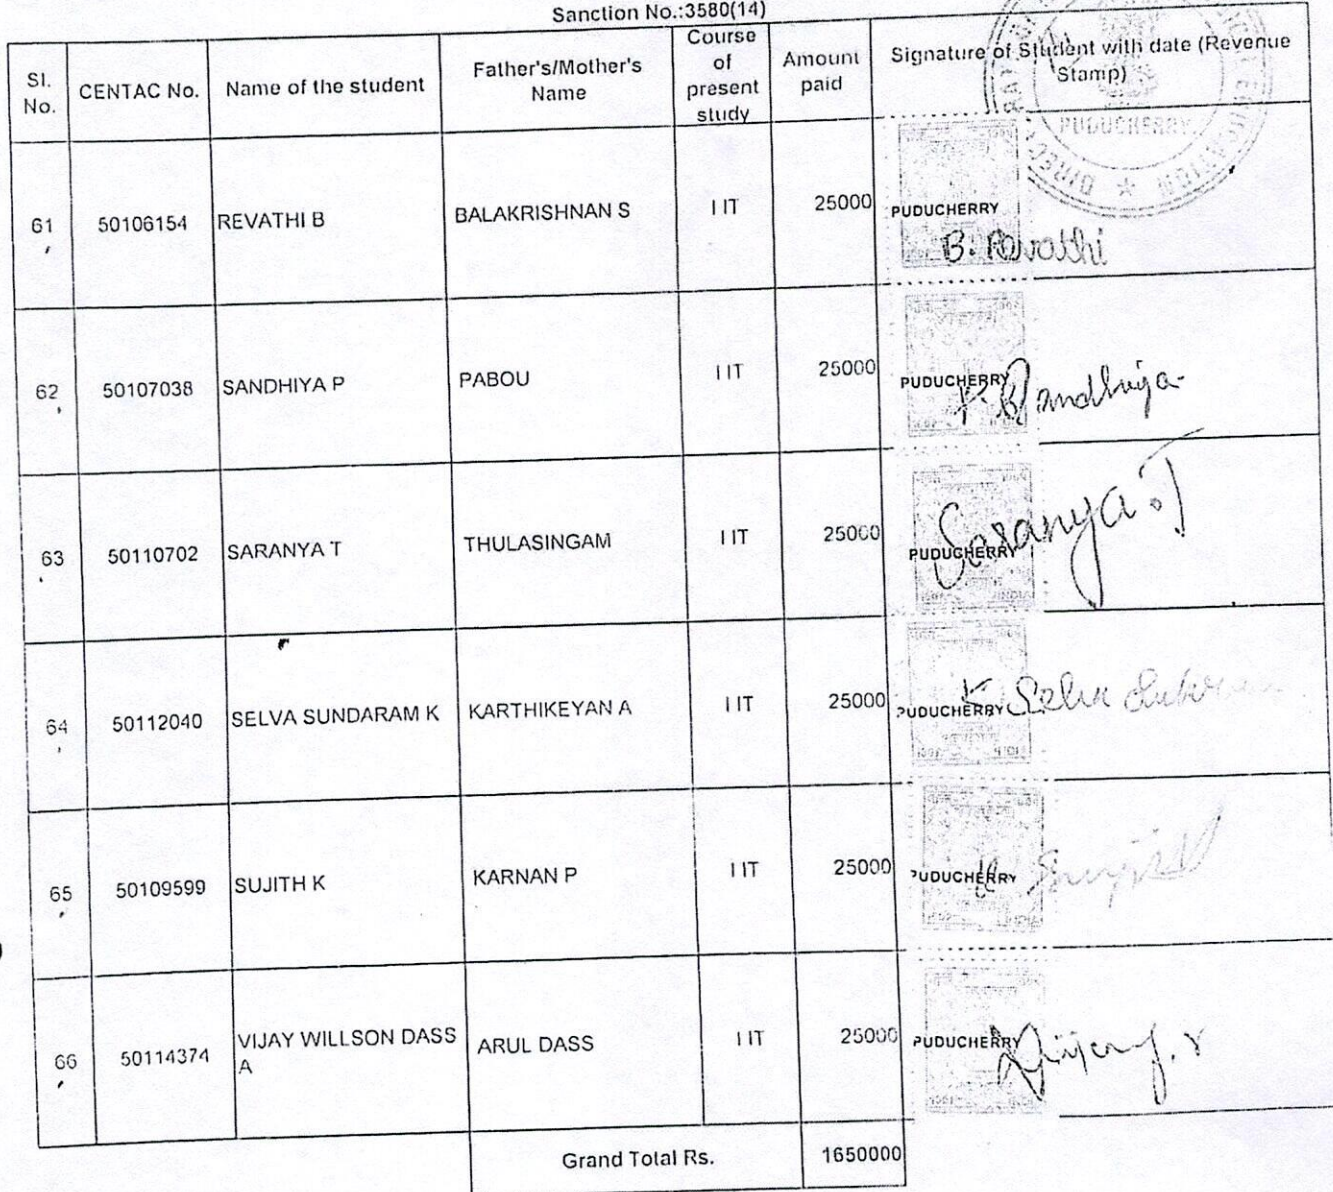 Sanction No.:3580(14)
Sl. No. CENTAC No. Name of the student Father's/Mother's Name Course of present study Amount paid Signature of Student with date (Revenue Stamp)
PUDUCHERRY
61 50106154 REVATHI B BALAKRISHNAN S I IT 25000 PUDUCHERRY
B. Revathi
62 50107038 SANDHIYA P PABOU I IT 25000 PUDUCHERRY
P. Sandhiya
63 50110702 SARANYA T THULASINGAM I IT 25000 PUDUCHERRY
Saranya.T
64 50112040 SELVA SUNDARAM K KARTHIKEYAN A I IT 25000 PUDUCHERRY
K Selva
65 50109599 SUJITH K KARNAN P I IT 25000 PUDUCHERRY
K Sujith
66 50114374 VIJAY WILLSON DASS A ARUL DASS I IT 25000 PUDUCHERRY
Grand Total Rs. 1650000